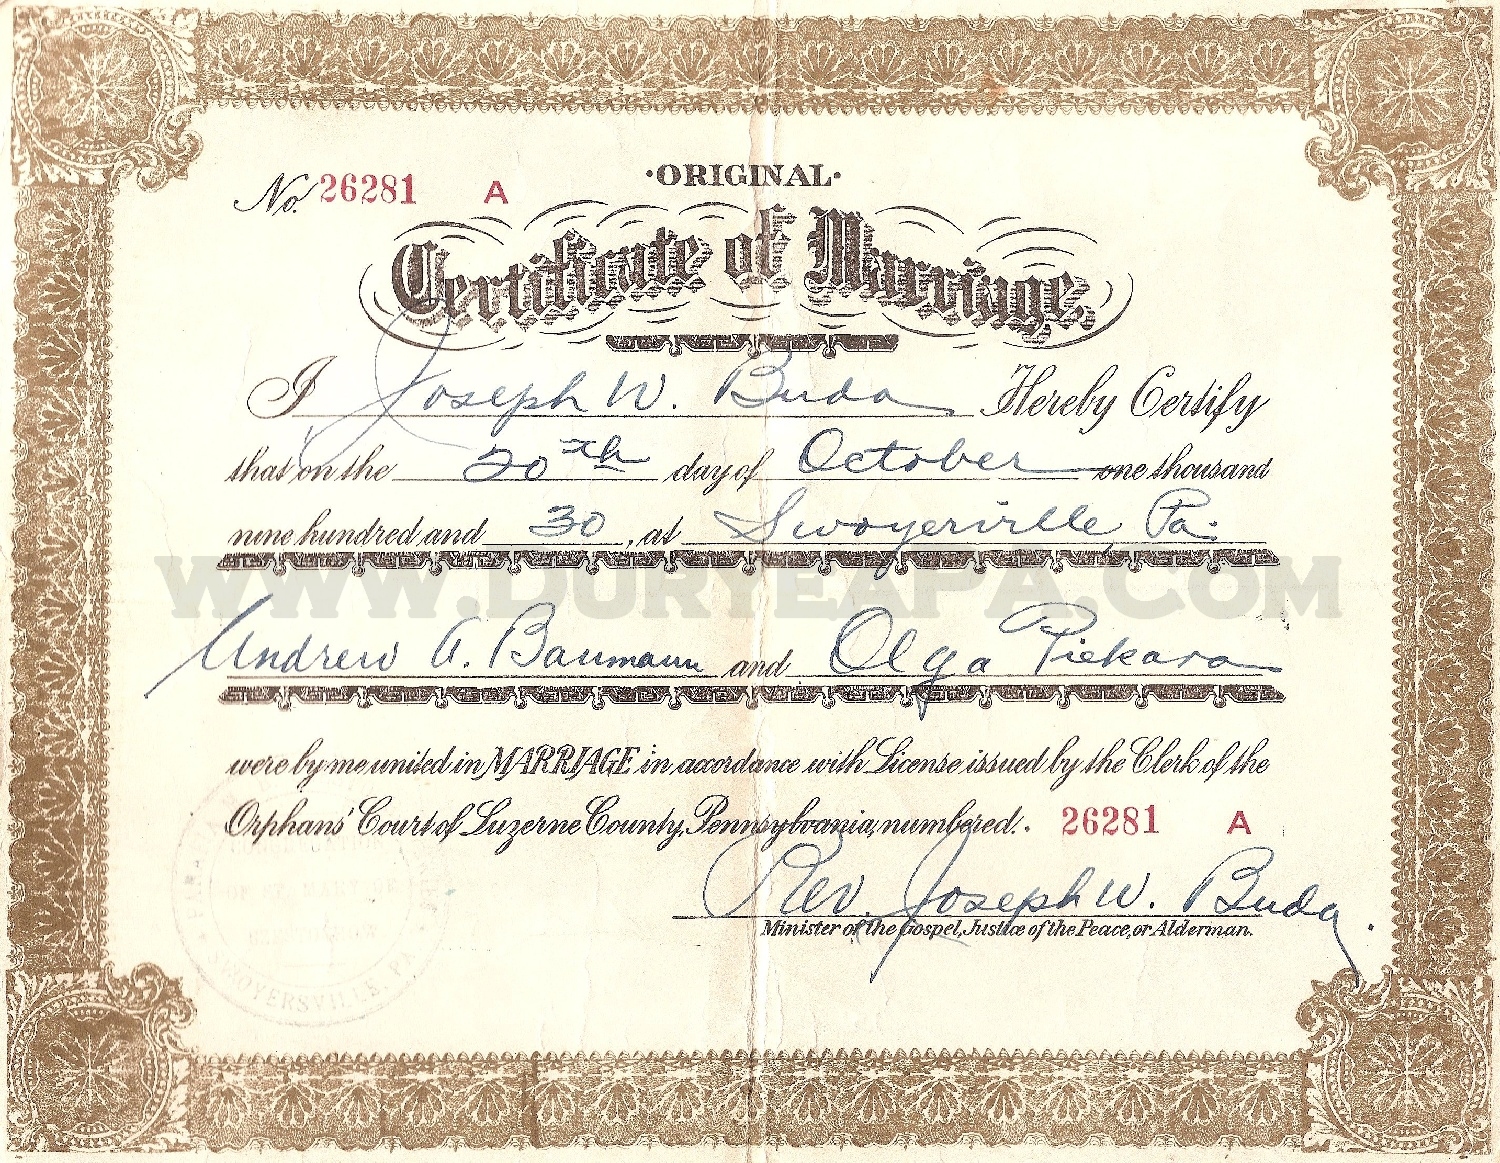 ·ORIGINAL·
No. 26281 A
Certificate of Marriage
I Joseph W. Buda Hereby Certify
that on the 20th day of October one thousand
nine hundred and 30, at Swoyerville, Pa.
WWW.DURYEAPA.COM
Andrew A. Baumann and Olga Piekara
were by me united in MARRIAGE in accordance with License issued by the Clerk of the
Orphans' Court of Luzerne County, Pennsylvania, numbered. 26281 A
Rev. Joseph W. Buda.
Minister of the Gospel, Justice of the Peace, or Alderman.
OF ST. MARY
SWOYERSVILLE, PA